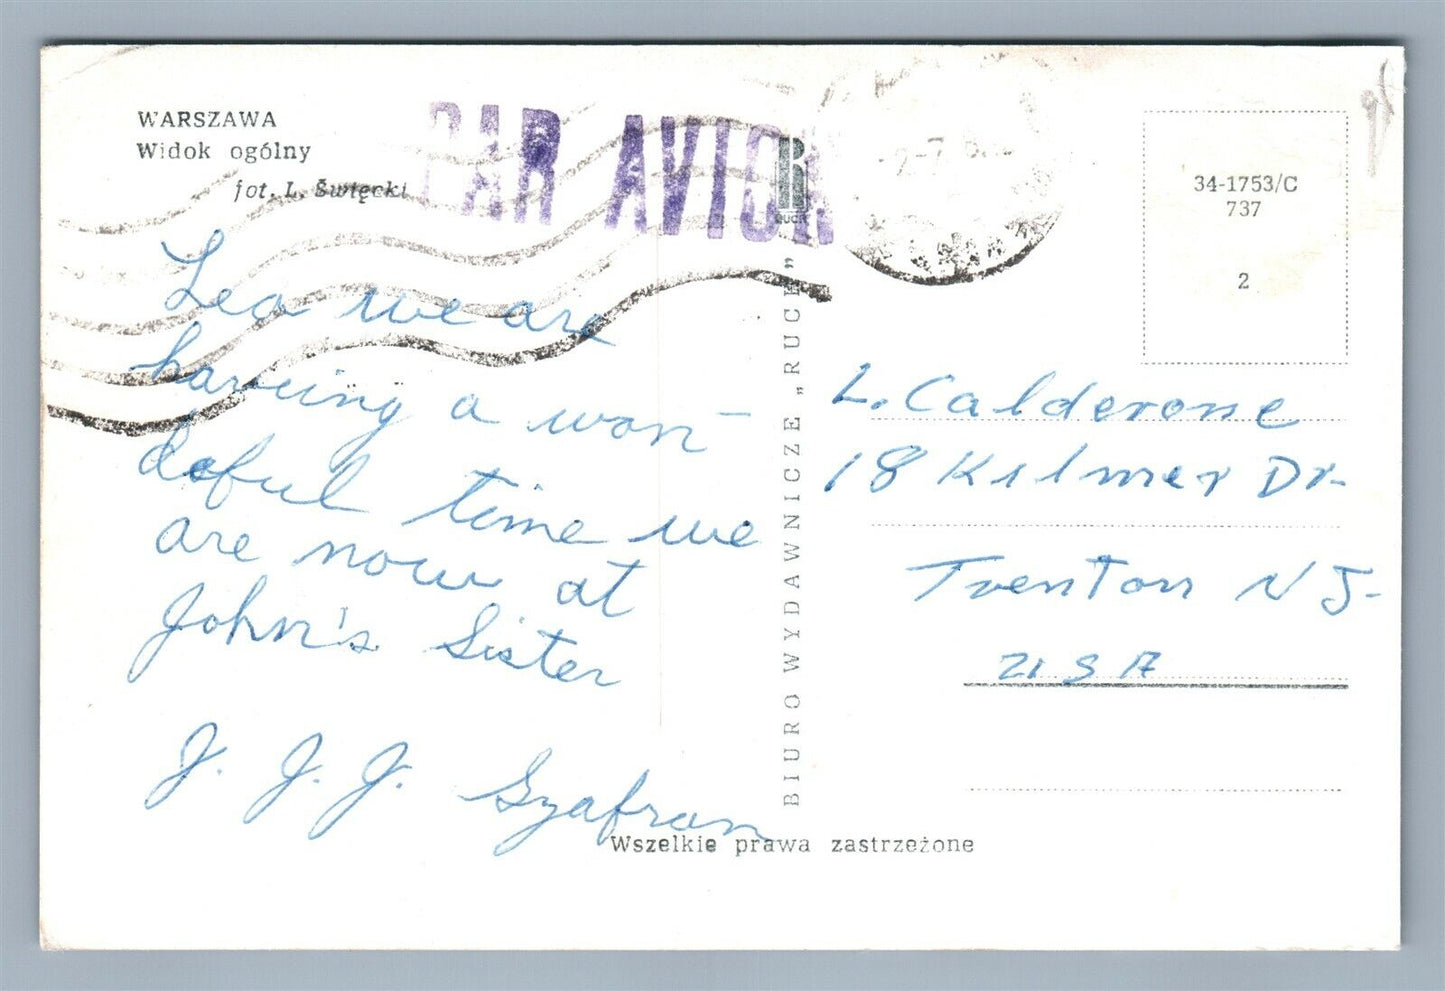 WARSZAWA
Widok ogólny
fot. L. Święcki
PAR AVION
R
RUCH
34-1753/C
737
2
Leo we are
having a won-
doful time we
are now at
John's Sister
J. J. J. Szafran
BIURO WYDAWNICZE „RUCH”
L. Calderone
18 Kilmer Dr.
Trenton N J.
USA
Wszelkie prawa zastrzeżone